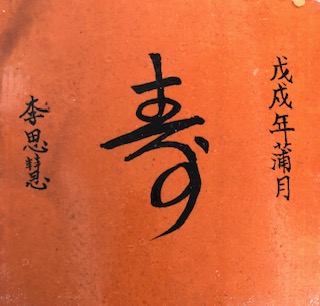 戊戌年蒲月
寿
李思慧